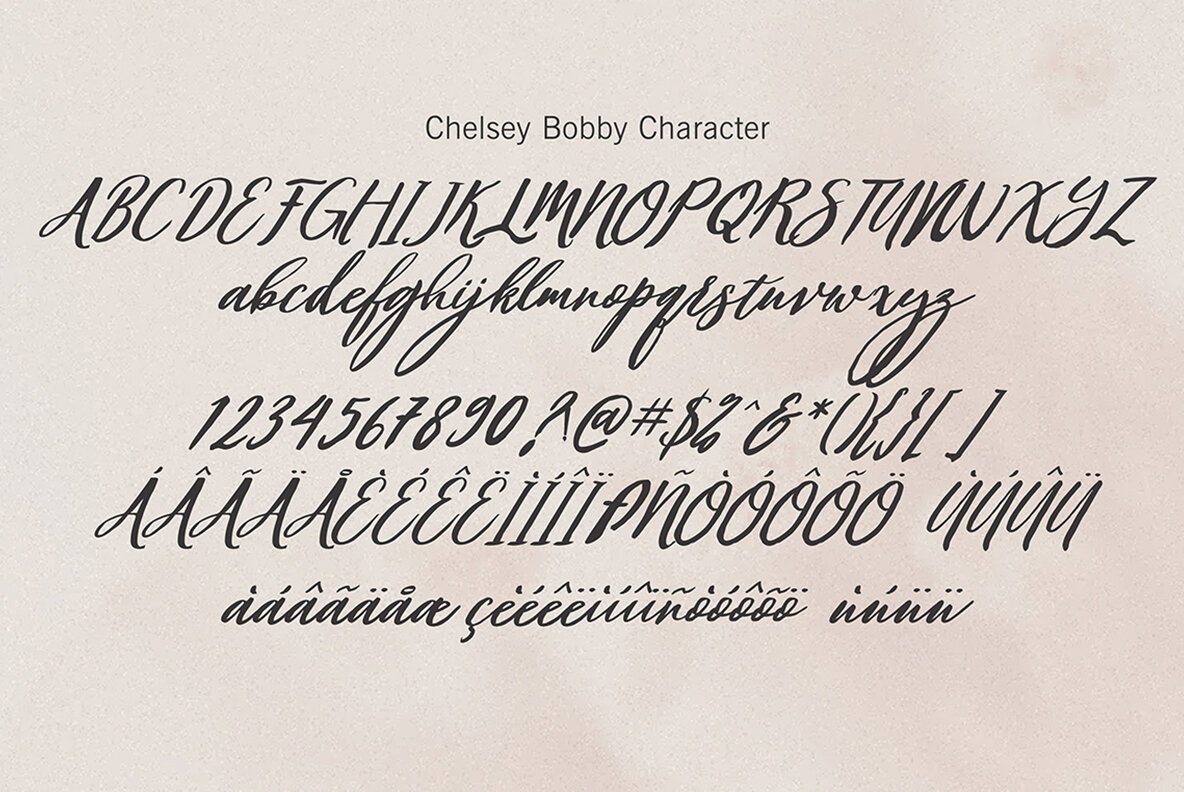 Chelsey Bobby Character
ABCDEFGHIJKLMNOPQRSTUVWXYZ
abcdefghijklmnopqrstuvwxyz
1234567890?!@#$%^&*(){}[ ]
ÁÂÃÄÅÈÉÊËÌÍÎÏÐÑÒÓÔÕÖ ÙÚÛÜ
àáâãäåæ çèéêëìíîïñòóôõö ùúûü